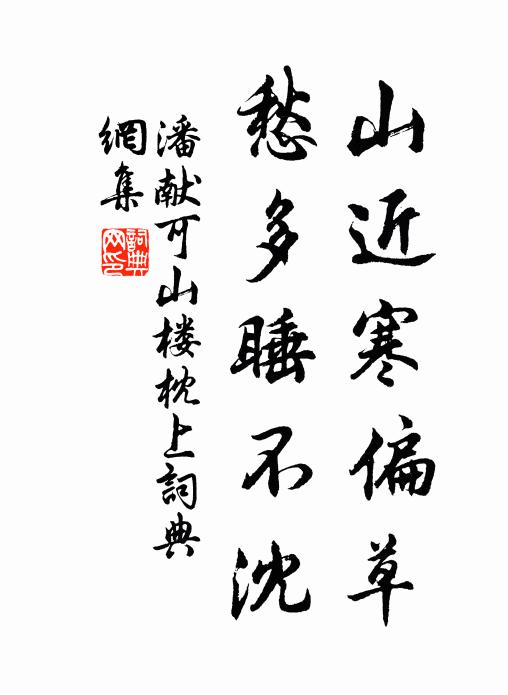 山近寒偏草
愁多睡不沈
潘献可山楼枕上詞典
網集
詞典網印